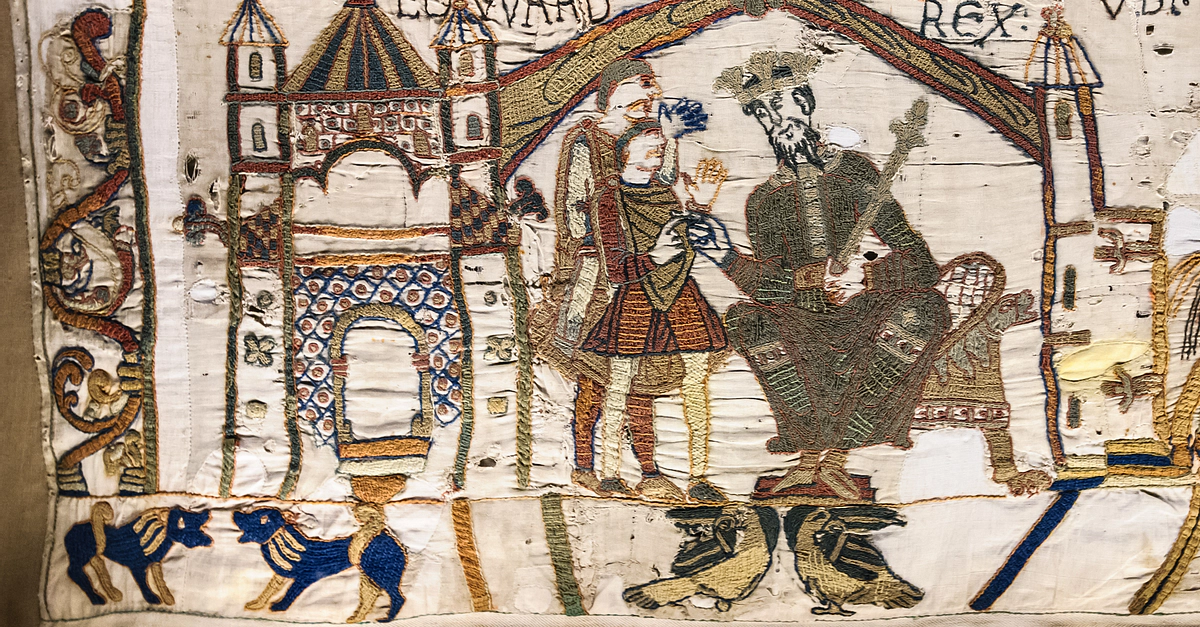 EDVVARD REX: VBI: